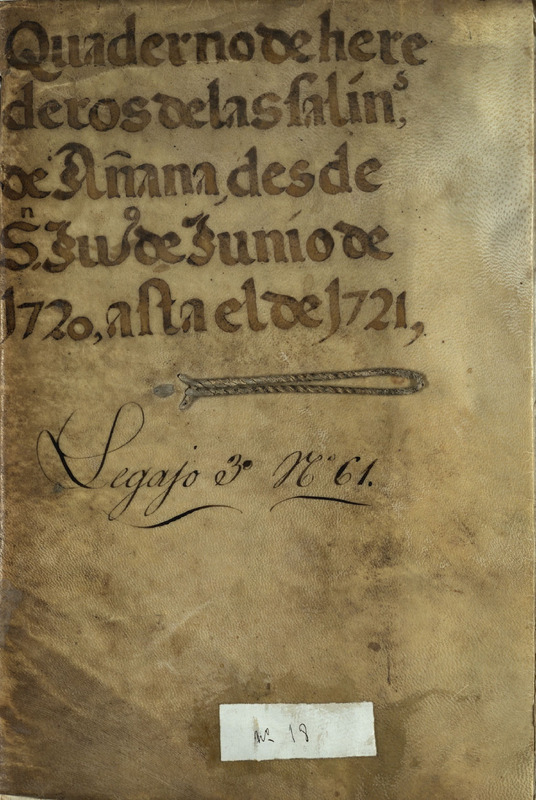 Quaderno de here
deros de las salin^s,
de Añana, desde
S^n. Ju^o de Junio de
1720, asta el de 1721,
Legajo 3º Nº 61.
Nº 18